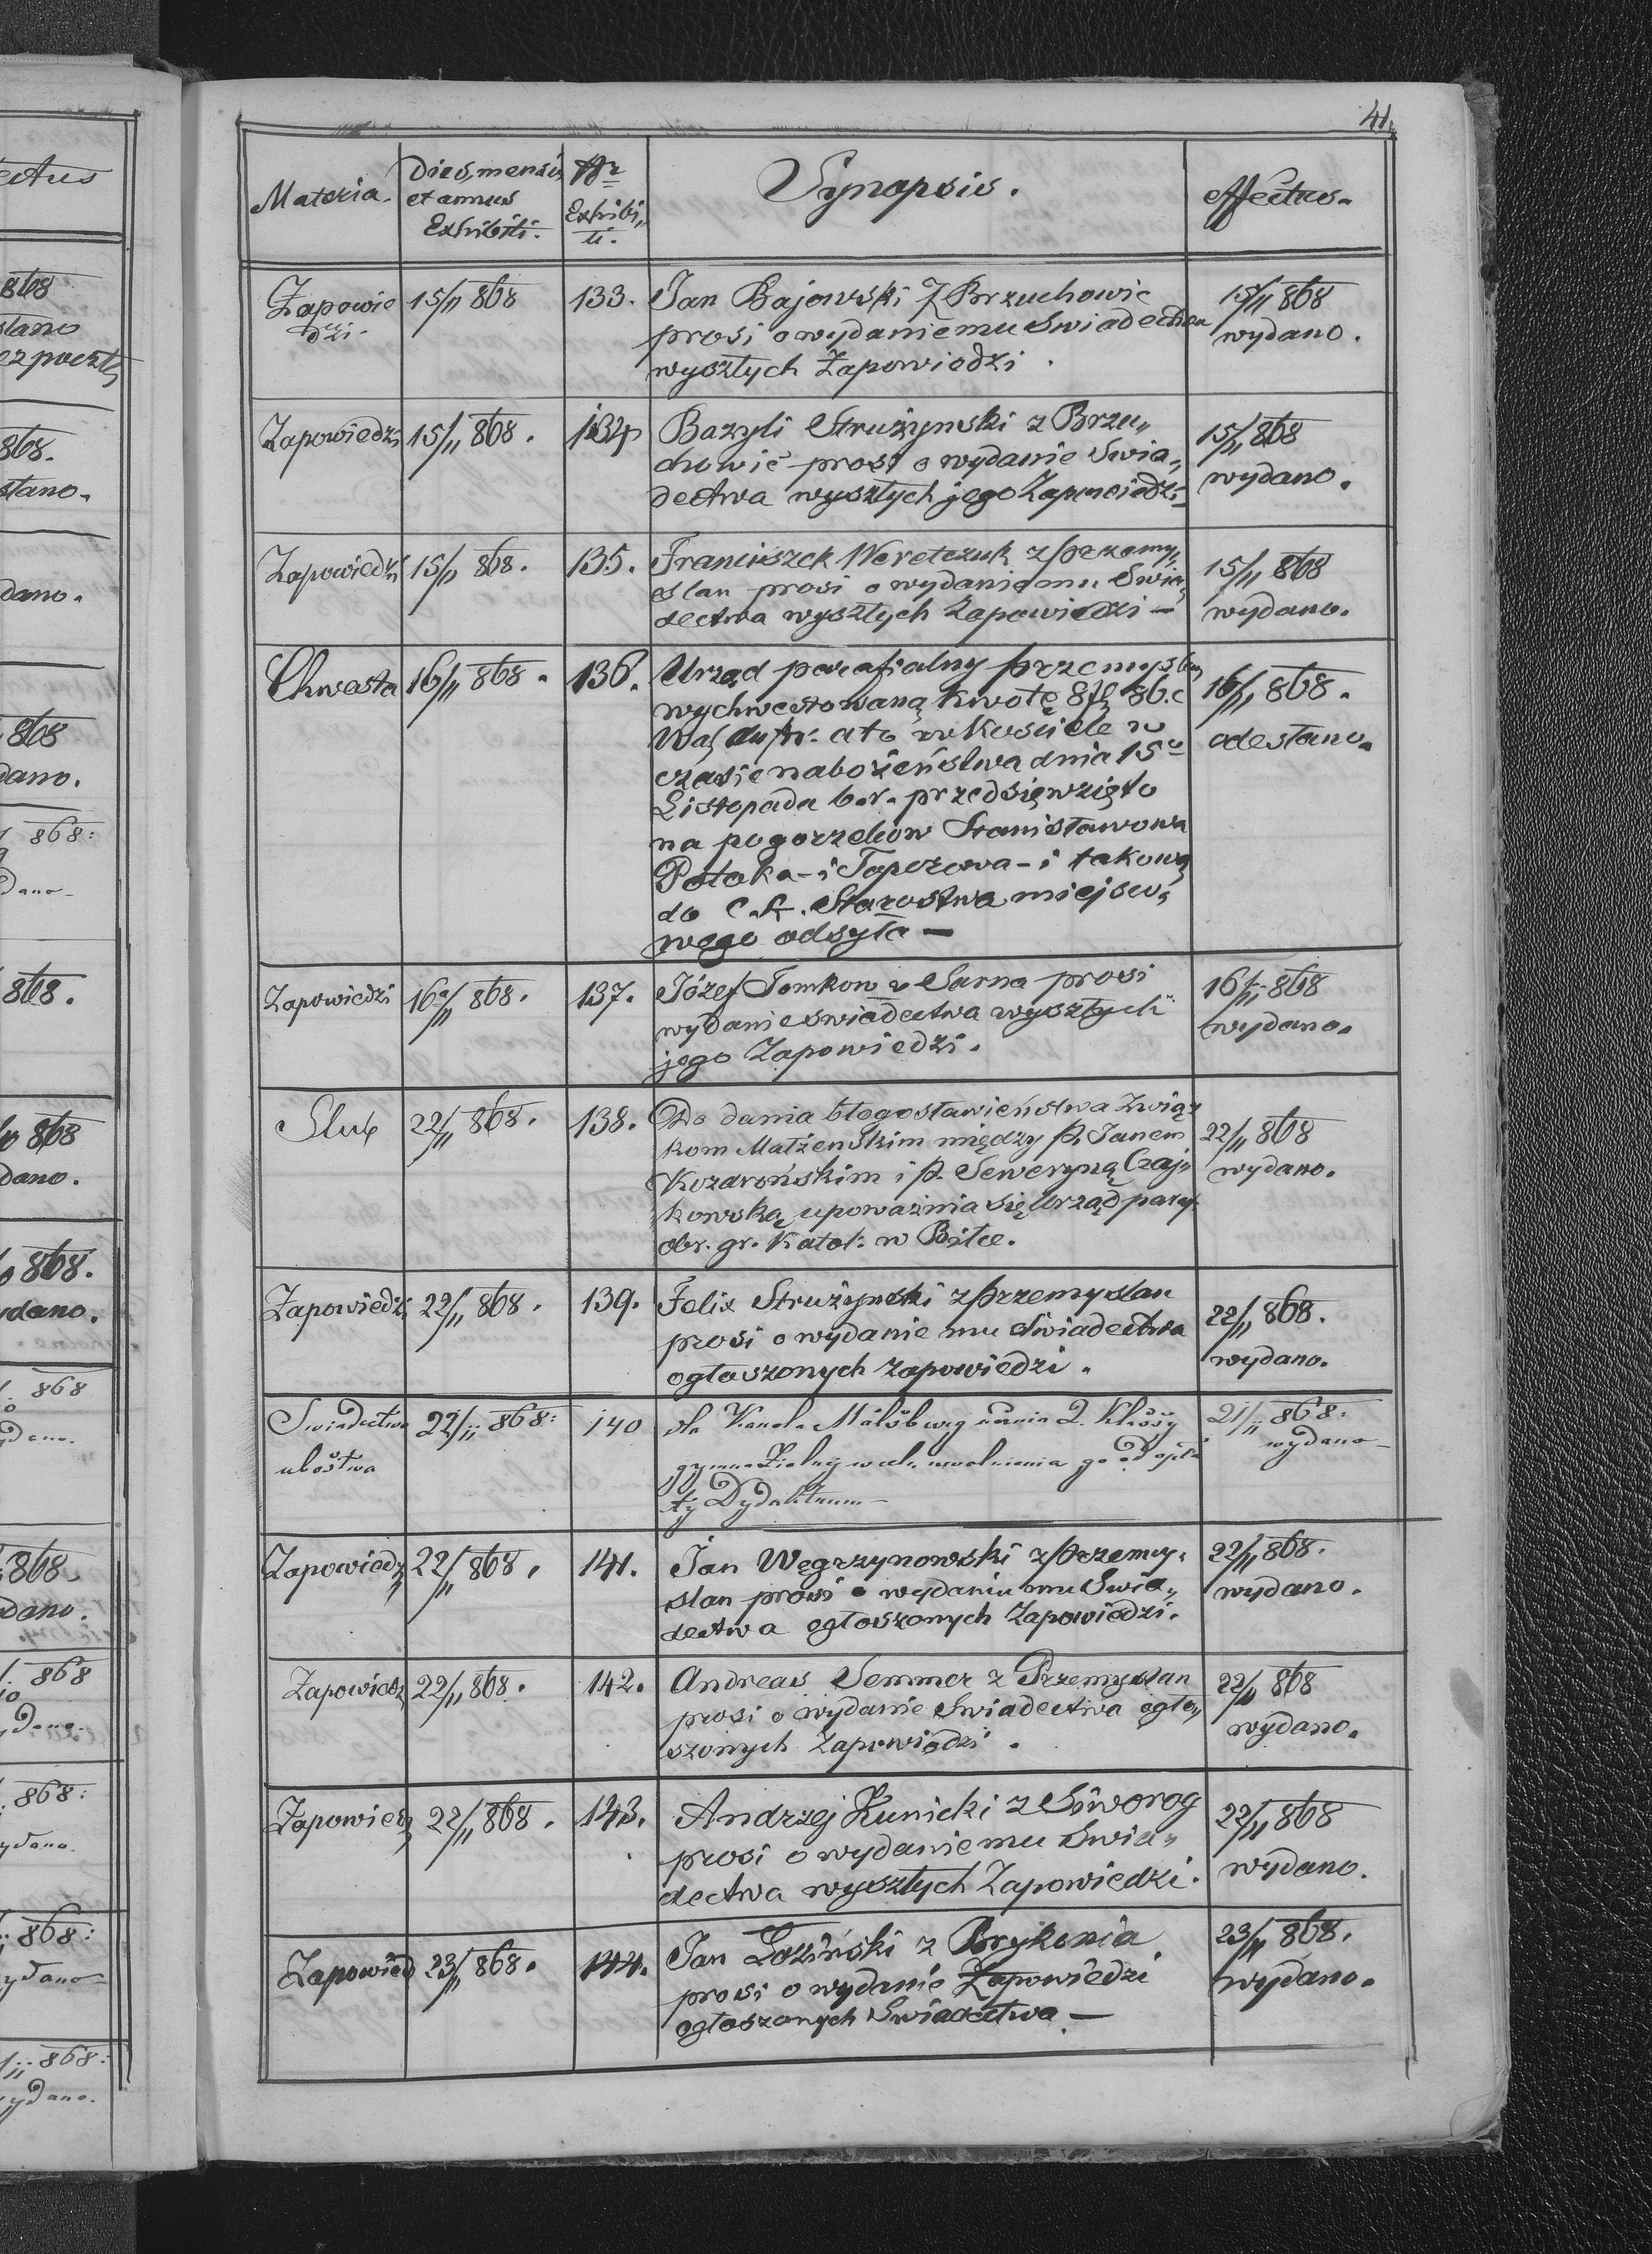 41.
Materia.
Dies, mensis
et annus
Exhibiti.
Nr
Exhibi„
ti.
Synopsis.
Effectus.
Zapowie
dzi.
15/11 868
133.
Jan Bajowski z Brzuchowic
prosi o wydanie mu Swiadectwa
wyszłych Zapowiedzi.
15/11 868
wydano.
Zapowiedzi
15/11 868.
134
Bazyli Strużynski z Brzu„
chowic prosi o wydanie Swia„
dectwa wyszłych jego Zapowiedzi
15/11 868
wydano.
Zapowiedzi
15/11 868.
135.
Franciszek Weretczuk z Przemy„
slan prosi o wydanie mu Swia„
dectwa wyszłych Zapowiedzi —
15/11 868
wydano.
Chwesta
16/11 868.
136.
Urząd parafialny Przemyslan
wychwestowaną kwotę 8 fl 86. c
Wal. austr. a to w kosciele w
czasie nabożeństwa dnia 15o
Listopada b. r. przedsięwzięto
na pogorzelców Stanisławowa
Potoka - i Toporowa - i takową
do C. K. Starostwa miejsco„
wego odsyła —
16/11 868.
odesłano.
Zapowiedzi
16/11 868.
137.
Józef Tomkow z Sarna prosi
wydanie swiadectwa wyszłych
jego Zapowiedzi.
16/11 868
wydano.
Slub
22/11 868.
138.
Do dania błogosławieństwa Związ„
kom Małżenskim między P. Janem
Kozarońskim i P. Seweryną Czaj„
kowską upoważnia się Urząd paraf.
obr. gr. Katol: w Biłce.
22/11 868
wydano.
Zapowiedzi
22/11 868.
139.
Felix Strużynski z Przemyslan
prosi o wydanie mu Swiadectwa
ogłoszonych zapowiedzi.
22/11 868.
wydano.
Swiadectwo
ubóstwa
22/11 868:
140
dla Karola Malsburg ucznia 2. Klassy
gymnazialnej w celu uwolnienia go od opła
ty Dydaktrum —
21/11 868:
wydano —
Zapowiedzi
22/11 868.
141.
Jan Węgrzynowski z Przemy„
slan prosi o wydaniu mu Swia„
dectwa ogłoszonych Zapowiedzi.
22/11 868.
wydano.
Zapowiedz
22/11 868.
142.
Andreas Semmer z Przemyslan
prosi o wydanie Swiadectwa ogło„
szonych Zapowiedzi.
22/11 868
wydano.
Zapowiedz
22/11 868.
143.
Andrzej Kunicki z Siworog
prosi o wydanie mu Swia„
dectwa wyszłych Zapowiedzi.
22/11 868
wydano.
Zapowied
23/11 868.
144.
Jan Łoziński z Brykonia
prosi o wydanie Zapowiedzi
ogłoszonych Swiadectwa. —
23/11 868.
wydano.